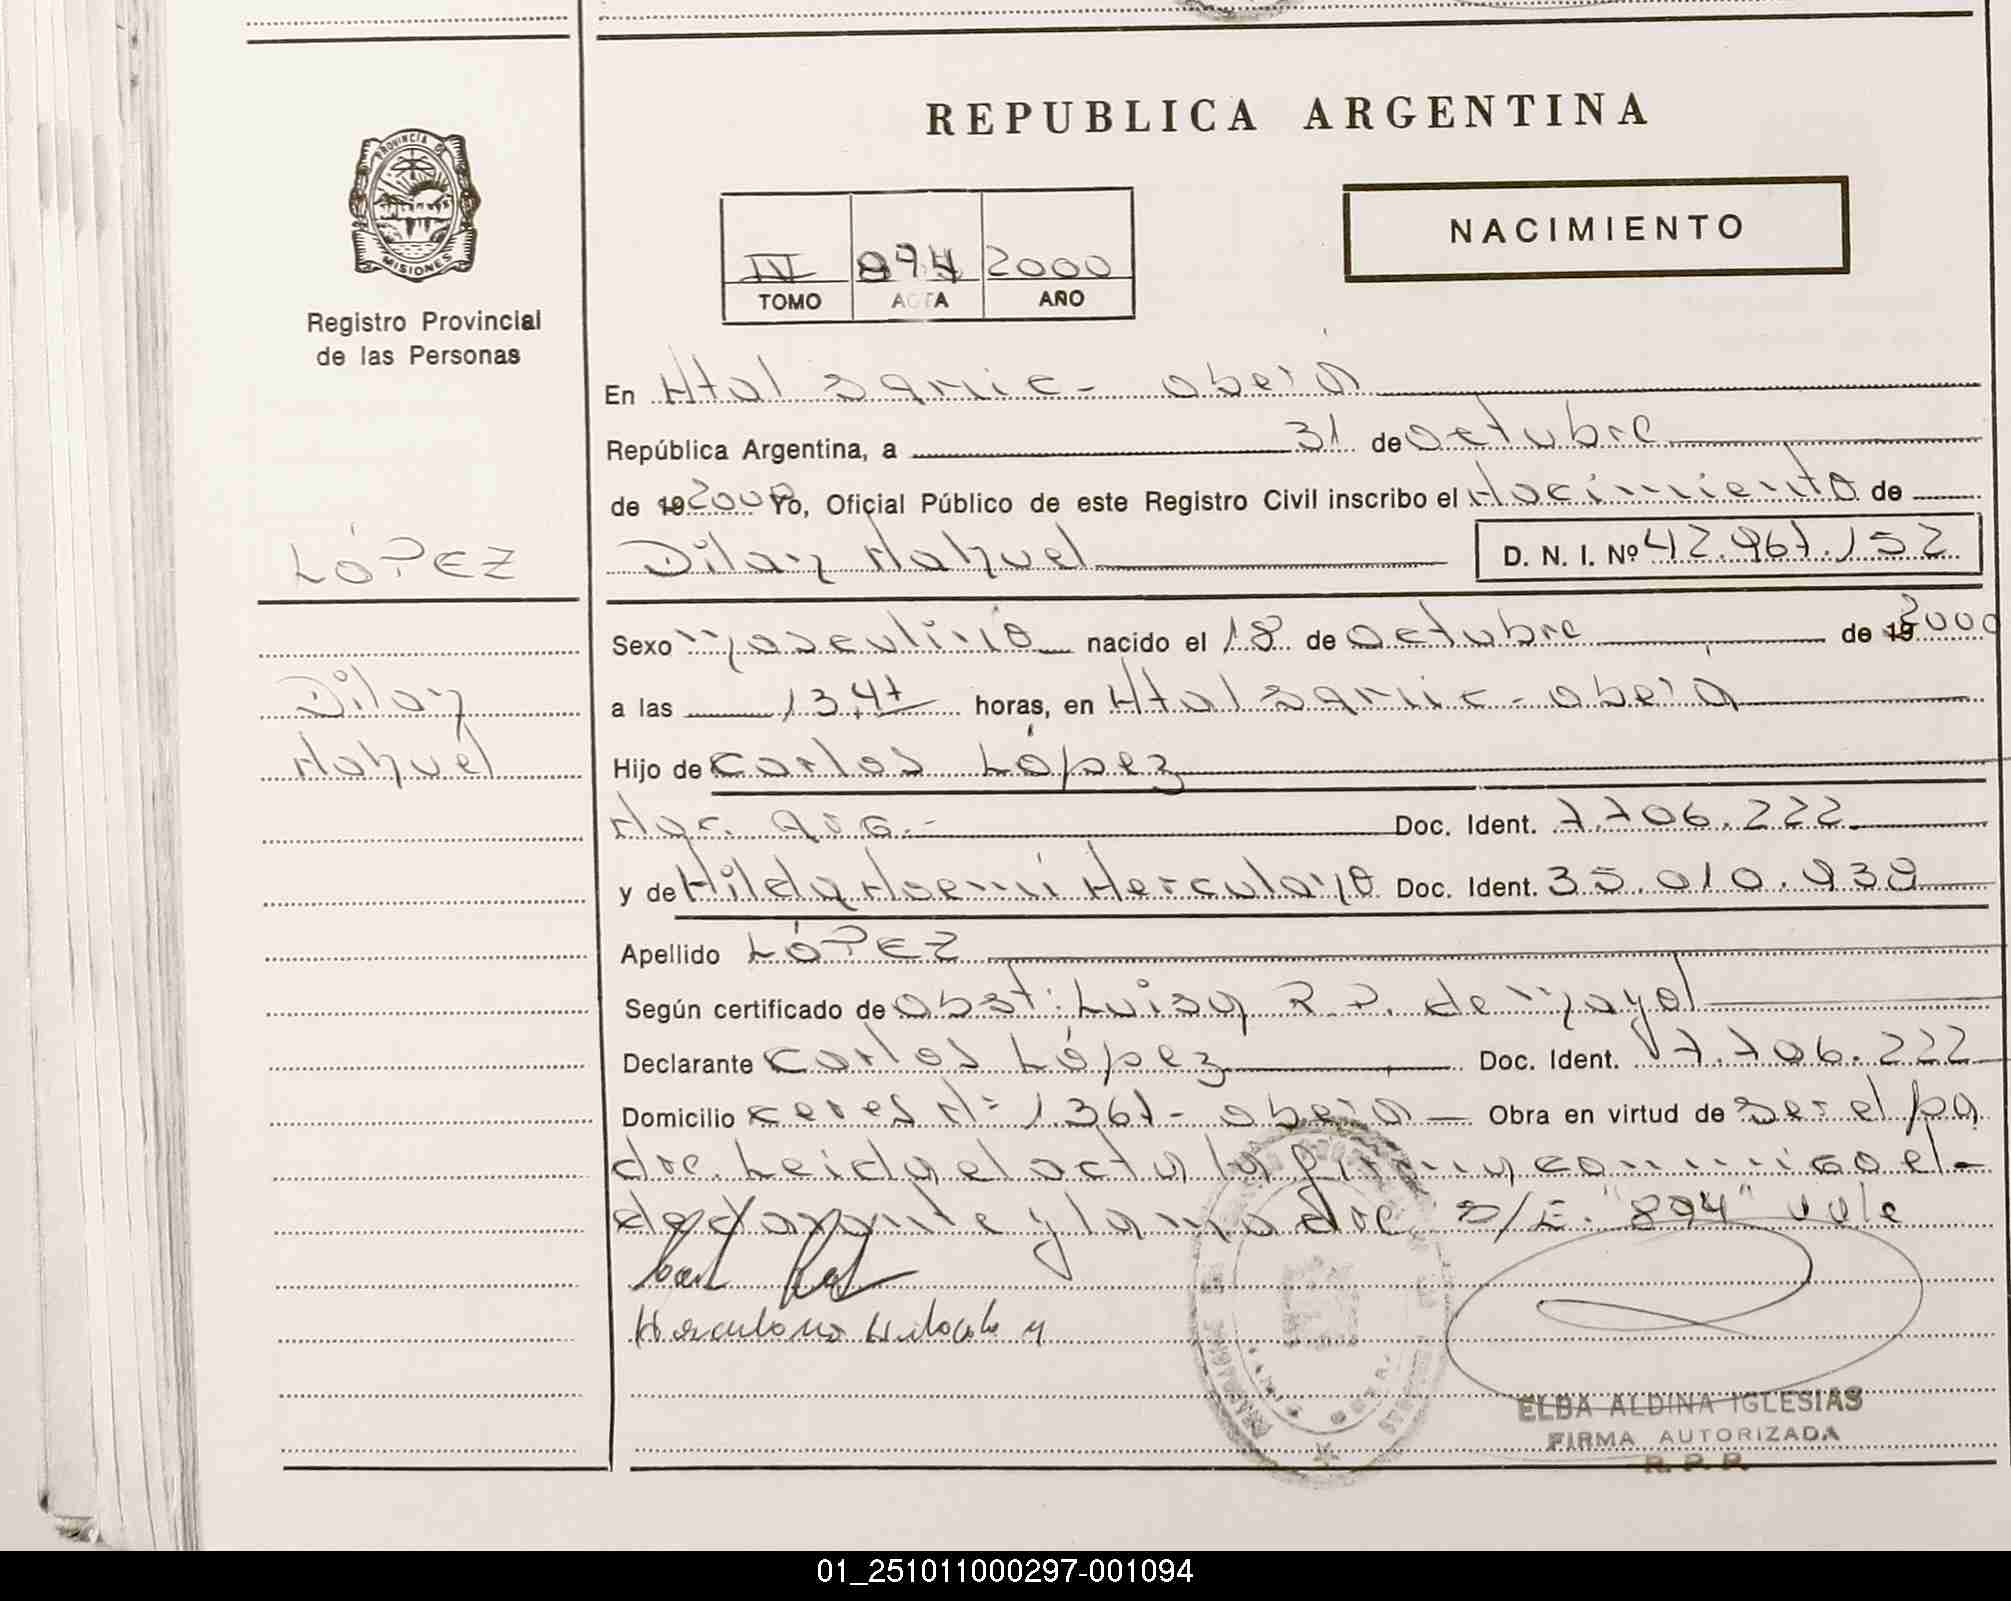 REPUBLICA ARGENTINA
PROVINCIA DE
MISIONES
Registro Provincial
de las Personas
NACIMIENTO
IV 894 2000
TOMO ACTA AÑO
En Htal samic - oberá
República Argentina, a 31 de octubre
de 19 2000 Yo, Oficial Público de este Registro Civil inscribo el Nacimiento de
LÓPEZ
Dilan Nahuel D. N. I. Nº 42.967.152
Sexo masculino nacido el 18 de octubre de 19 2000
Dilan
a las 13,47 horas, en Htal samic - oberá
Nahuel
Hijo de carlos López
Nac. arg.- Doc. Ident. 7.706.222
y de Hilda Noemí Herculano Doc. Ident. 35.010.938
Apellido LÓPEZ
Según certificado de obst: Luisa R.P. de Mayol
Declarante carlos López Doc. Ident. 7.706.222
Domicilio ceres Nº 1.367 - oberá Obra en virtud de ser el pa
dre. Leida el acta la firma conmigo el-
declarante y la madre S/E. "894" vale
Herculano
ELBA ALDINA IGLESIAS
FIRMA AUTORIZADA
R. P. P.
01_251011000297-001094